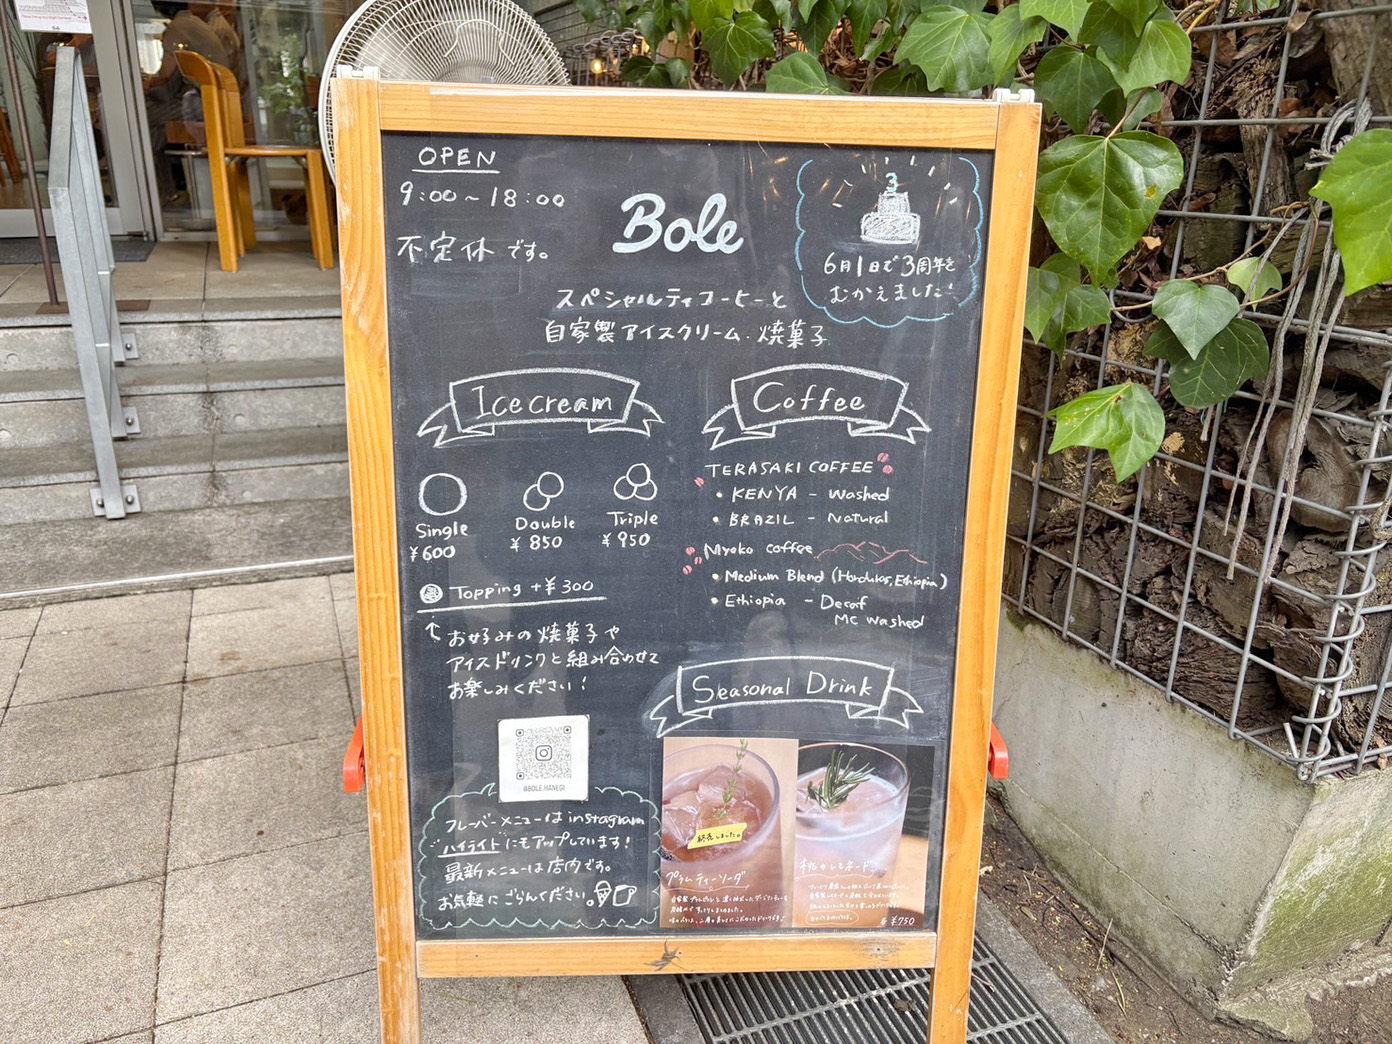 OPEN
9:00~18:00
不定休です。
Bole
3
6月1日で3周年を
むかえました!
スペシャルティコーヒーと
自家製アイスクリーム・焼菓子
Ice cream
Single
¥600
Double
¥850
Triple
¥950
Topping +¥300
お好みの焼菓子や
アイスドリンクと組み合わせて
お楽しみください!
Coffee
TERASAKI COFFEE
• KENYA - Washed
• BRAZIL - Natural
Myoko coffee
• Medium Blend (Honduras, Ethiopia)
• Ethiopia - Decaf
MC washed
Seasonal Drink
@BOLE.HANEGI
フレーバーメニューはinstagram
ハイライトにもアップしています!
最新メニューは店内です。
お気軽にごらんください。
終売しました。
プラムティーソーダ
桃のレモネード
各 ¥750